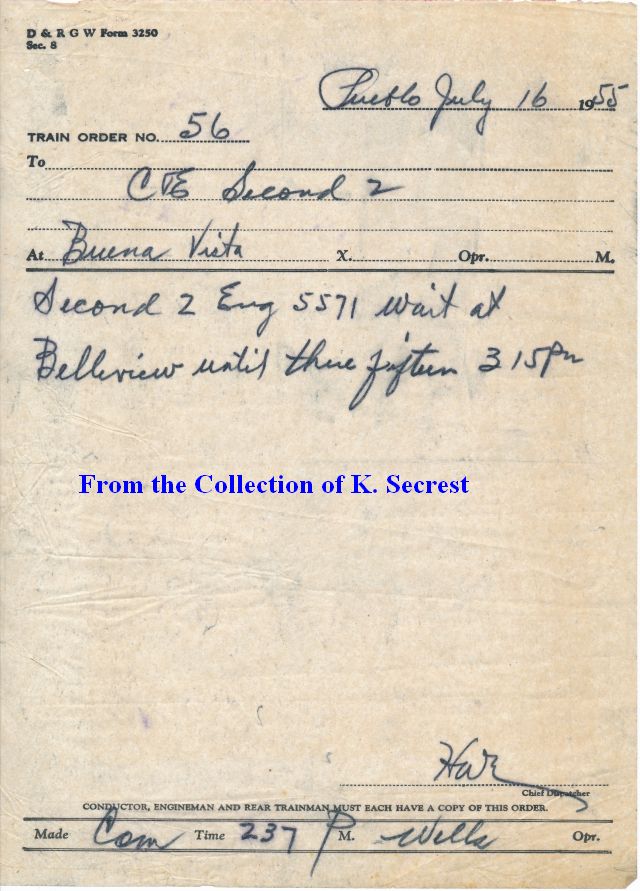 D & R G W Form 3250
Sec. 8
Pueblo July 16 1955
TRAIN ORDER NO. 56
To
C&E Second 2
At Buena Vista X. Opr. M.
Second 2 Eng 5571 wait at
Belleview until three fifteen 315Pm
From the Collection of K. Secrest
Chief Dispatcher
CONDUCTOR, ENGINEMAN AND REAR TRAINMAN MUST EACH HAVE A COPY OF THIS ORDER.
Made Com Time 237 P M. Wells Opr.